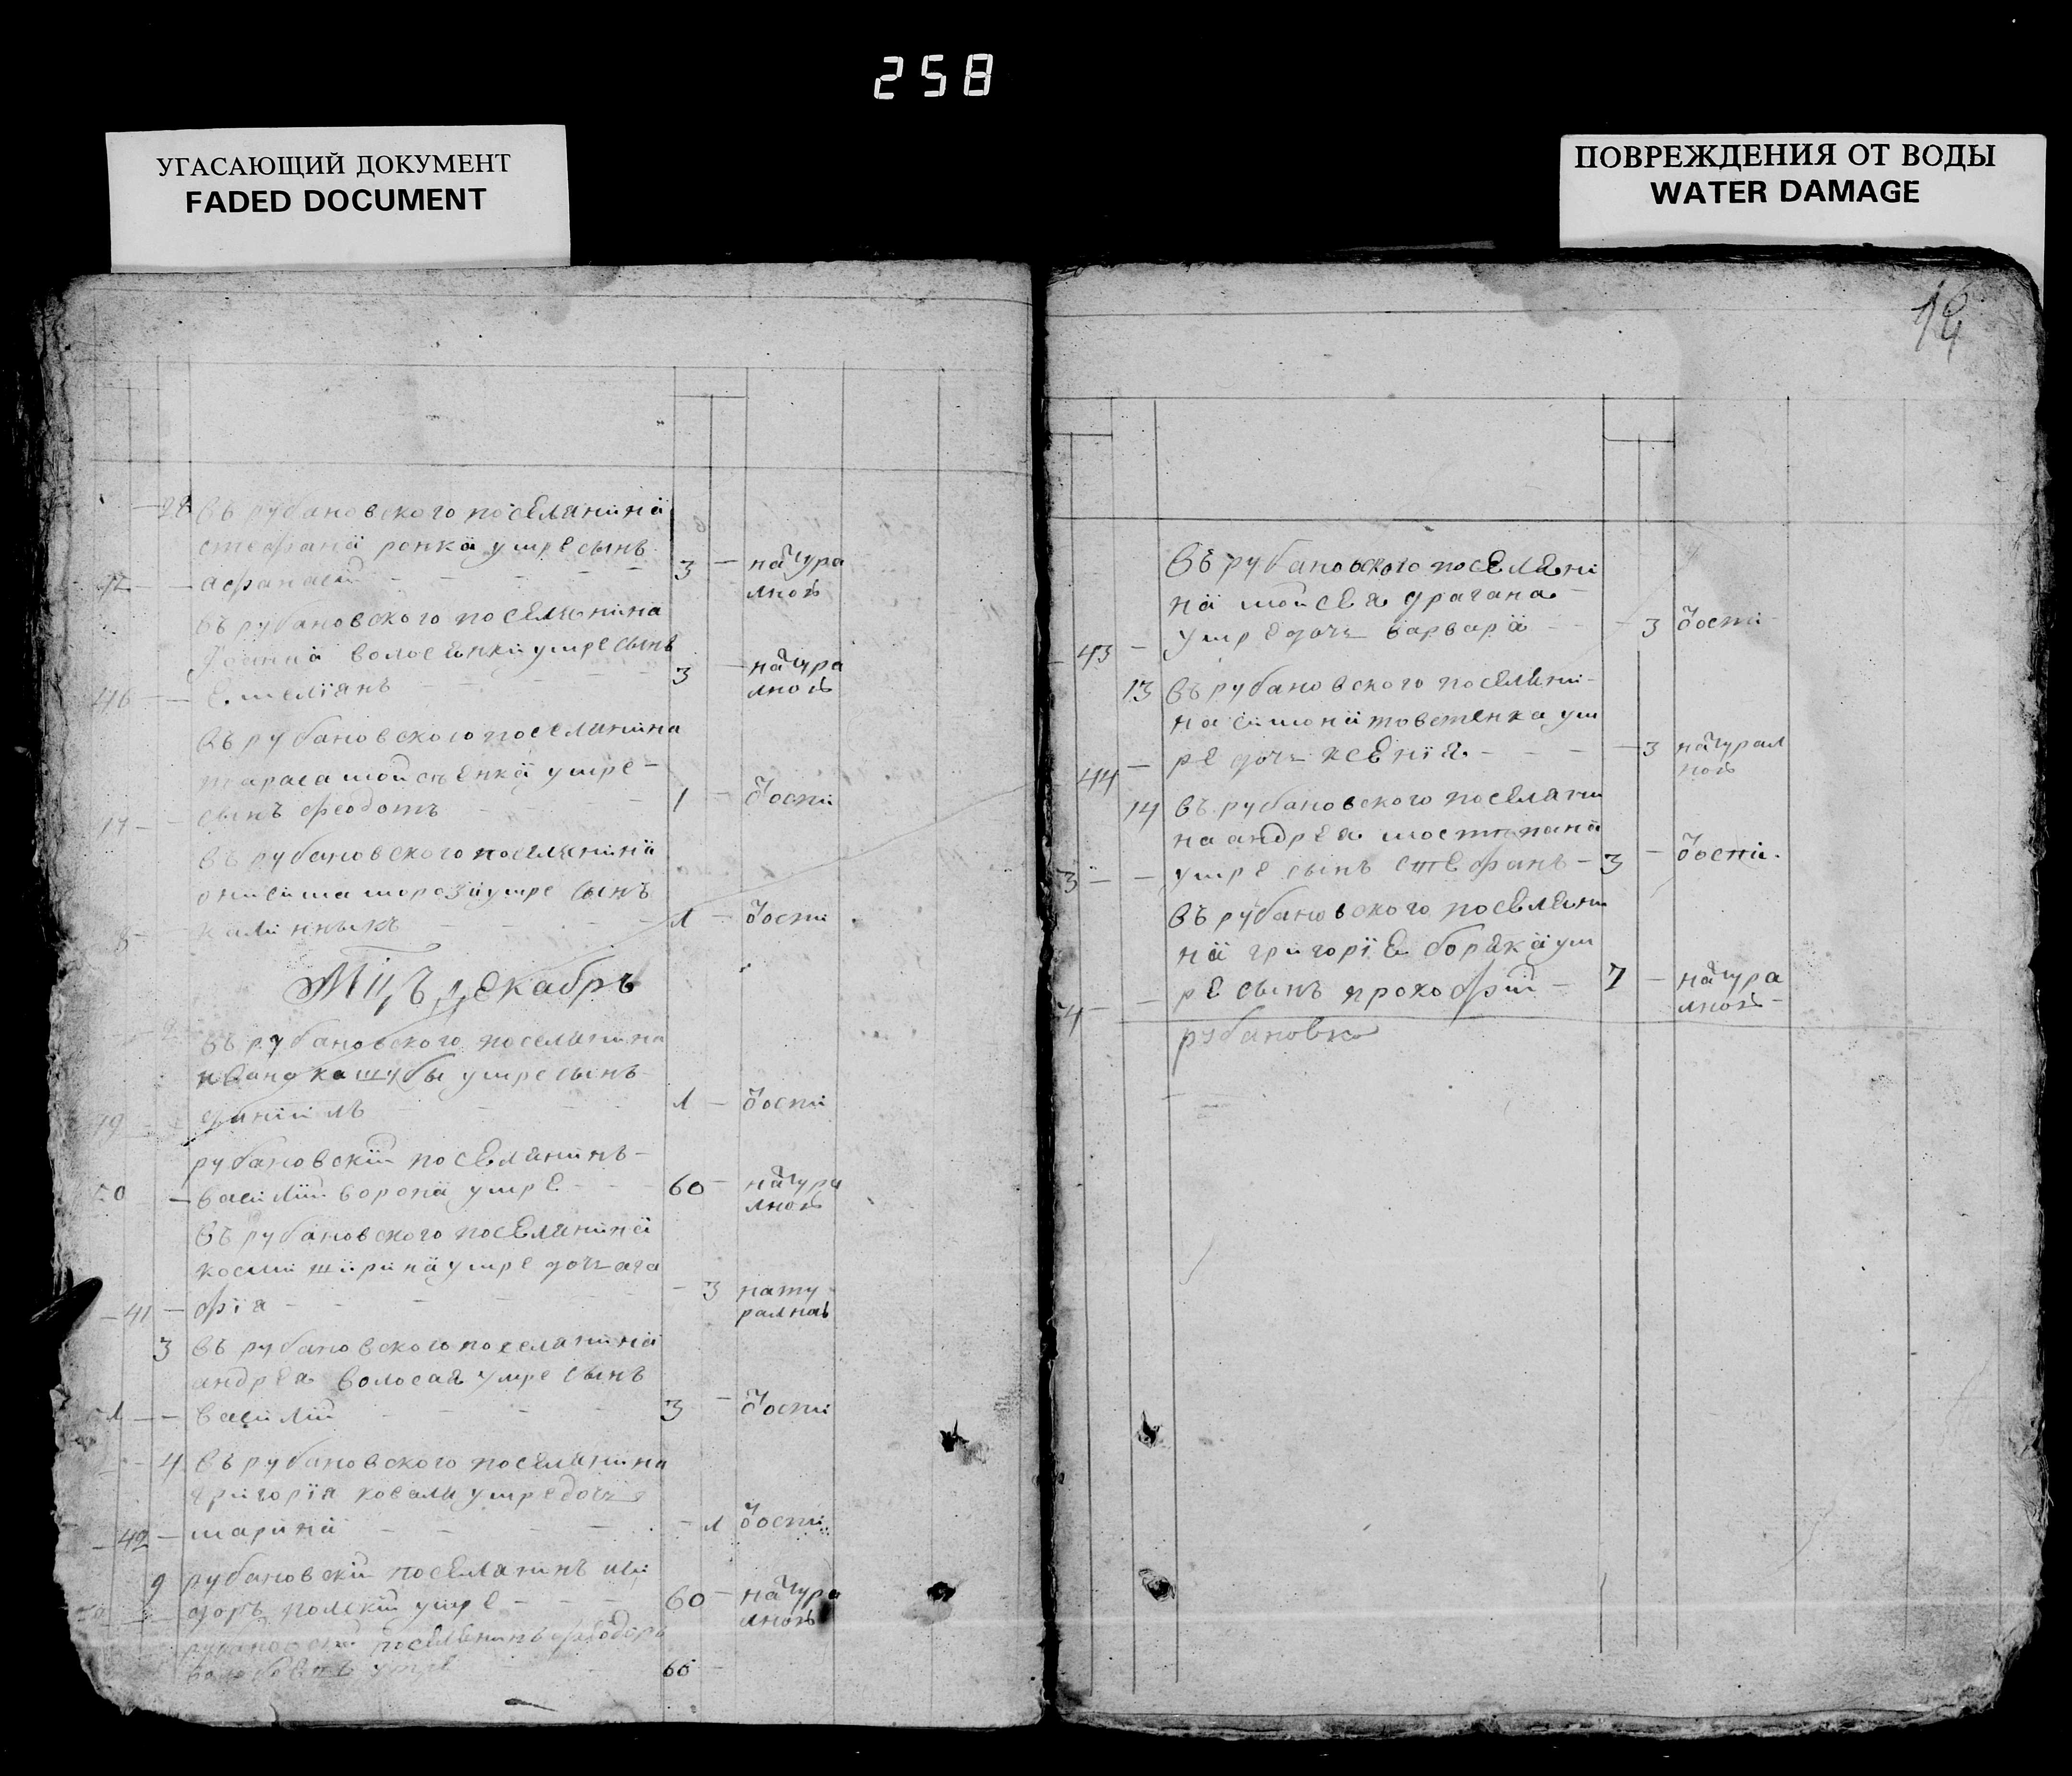 258
УГАСАЮЩИЙ ДОКУМЕНТ
FADED DOCUMENT
ПОВРЕЖДЕНИЯ ОТ ВОДЫ
WATER DAMAGE
28 въ рубановского поселянина
стефана репка умре сынъ
афанасій 3 натура
лною
въ рубановского поселянина
волосенки умре сынъ
46 Емеліянъ 3 натура
лною
въ рубановского поселянина
тараса мойсеенка умре
сынъ феодотъ 1 оспи
въ рубановского поселянина
онисима мороза умре сынъ
1 оспи
Мцъ декабръ
въ рубановского поселянина
ивана кашубы умре сынъ
даніилъ 1 оспи
рубановскій поселянинъ
василій ворона умре 60 натура
лною
въ рубановского поселянина
косми ширина умре дочь ага
41 фія 3 нату
ралная
3 въ рубановского поселянина
андрея волосая умре сынъ
василій 3 оспи
4 въ рубановского поселянина
григорія ковали умре дочь
42 марина 1 оспи
9 рубановскій поселянинъ иси
доръ полскій умре 60 натура
лною
рубановскій поселянинъ феодоръ
умре 60
въ рубановского поселяни
на мойсея драгана
43 умре дочь варвара 3 оспи
13 въ рубановского поселяни
на симона товстенка ум
44 ре дочь ксенія 3 натурал
ною
14 въ рубановского поселяни
на андрея мостипана
умре сынъ стефанъ 3 оспи
въ рубановского поселяни
на григорія боряка ум
ре сынъ прокофій 7 натура
лною
рубановка